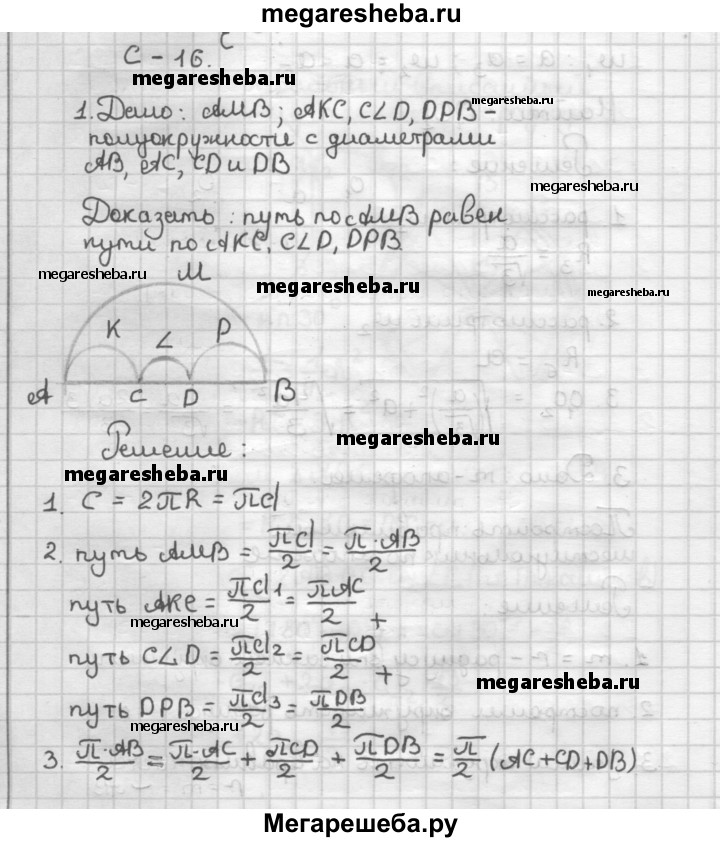 megaresheba.ru
С - 16.
megaresheba.ru
1. Дано: AMB; AKC, CLD, DPB -
полуокружности с диаметрами
AB, AC, CD и DB
megaresheba.ru
Доказать: путь по AMB равен
пути по AKC, CLD, DPB
megaresheba.ru
M
megaresheba.ru
megaresheba.ru
K L P
A C D B
Решение:
megaresheba.ru
megaresheba.ru
1. C = 2πR = πd
2. путь AMB = πd/2 = π·AB/2
путь AKC = πd1/2 = πAC/2 +
megaresheba.ru
путь CLD = πd2/2 = πCD/2 +
megaresheba.ru
путь DPB = πd3/2 = πDB/2
megaresheba.ru
3. π·AB/2 = π·AC/2 + πCD/2 + πDB/2 = π/2 (AC+CD+DB)
Мегарешеба.ру